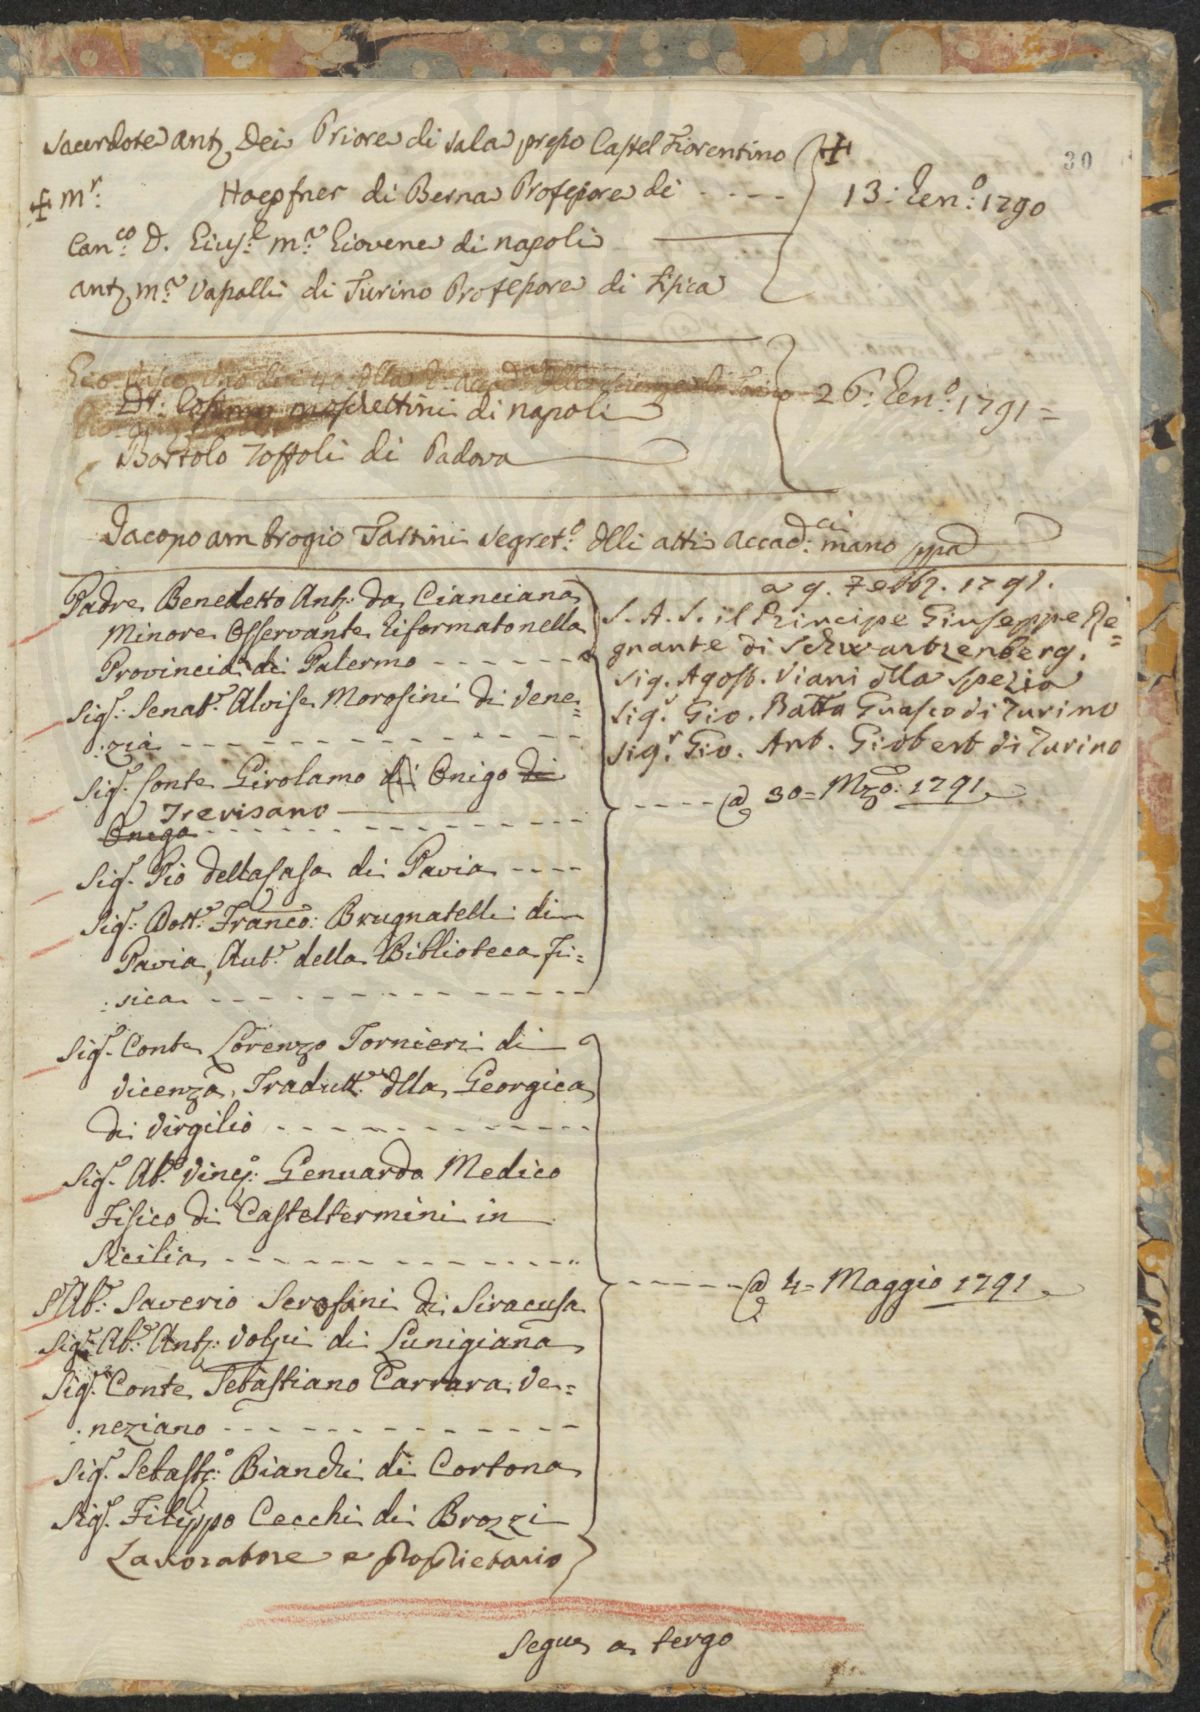 30
Sacerdote Antº Dei Priore di Sala presso Castel Fiorentino
✠ Mʳ: Hoepfner di Berna Professore di - - - -
✠ 13: Genº: 1790
Canᶜᵒ: D. Mʳ Giovene di Napoli
Antº Mʳ Vasalli di Turino Professore di Fisica
Dʳ. Cosimo Moschettini di Napoli
26: Genº: 1791=
Bortolo Toffoli di Padova
Jacopo Ambrogio Tartini Segretº: dlli atti Accadᶜⁱ: mano ppa
Padre Benedetto Antº. da Cianciana
Minore Osservante Riformato nella
Provincia di Palermo - - - - - -
Sigʳ: Senatʳ. Alvise Morosini di Vene=
:zia - - - - - - - - - - - -
Sigʳ. Conte Girolamo di Onigo di
Trevisano
Onigo - - - - - - - - - -
Sigʳ. Pio dellaCasa di Pavia - - - -
Sigʳ. Dottʳ. Francº: Brugnatelli di
Pavia, Autʳ. della Biblioteca Fi=
:sica - - - - - - - - - - -
a 9. Febbº. 1791.
S. A. S. il Principe Giuseppe Re=
gnante di Schwartzenberg.
Sig. Agosᵗ. Viani dlla Spezia
Sigʳ. Gio. Batta Guasco di Turino
Sigʳ. Gio. Ant. Giobert di Turino
- - - - @ 30= Mzº: 1791.
Sigʳ. Conte Lorenzo Tornieri di
Vicenza, Traduttʳᵉ dlla Georgica
di Virgilio - - - - - - - - - - -
Sigʳ. Abᵉ. Vincº: Genuardo Medico
Fisico di Casteltermini in
Sicilia - - - - - - - - - - -
Sʳ Abᵉ: Saverio Scrofani di Siracusa
Sigʳ. Abᵉ: Antº: Volpi di Lunigiana
Sigʳ. Conte Sebastiano Carrara Ve=
:neziano - - - - - - - - - - -
Sigʳ. Sebastº: Bianchi di Cortona
Sigʳ. Filippo Cecchi di Brozzi
Lavoratore e proprietario
- - - - - @ 4= Maggio 1791.
Segue a tergo